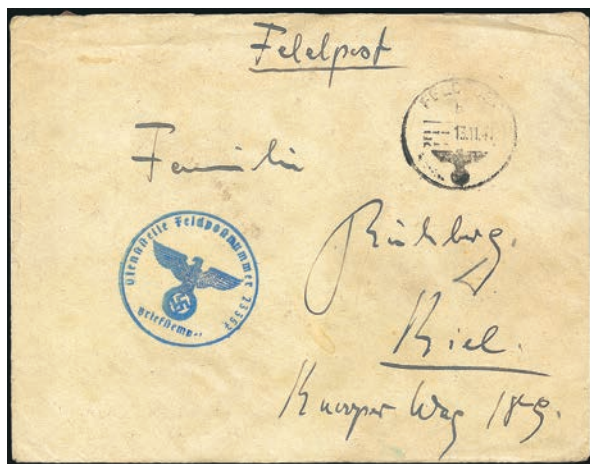 Feldpost
FELDPOST
b
13.11.4
Familie
Dienststelle Feldpostnummer 23557
Briefstempel
Kiel.
Knooper Weg 189.